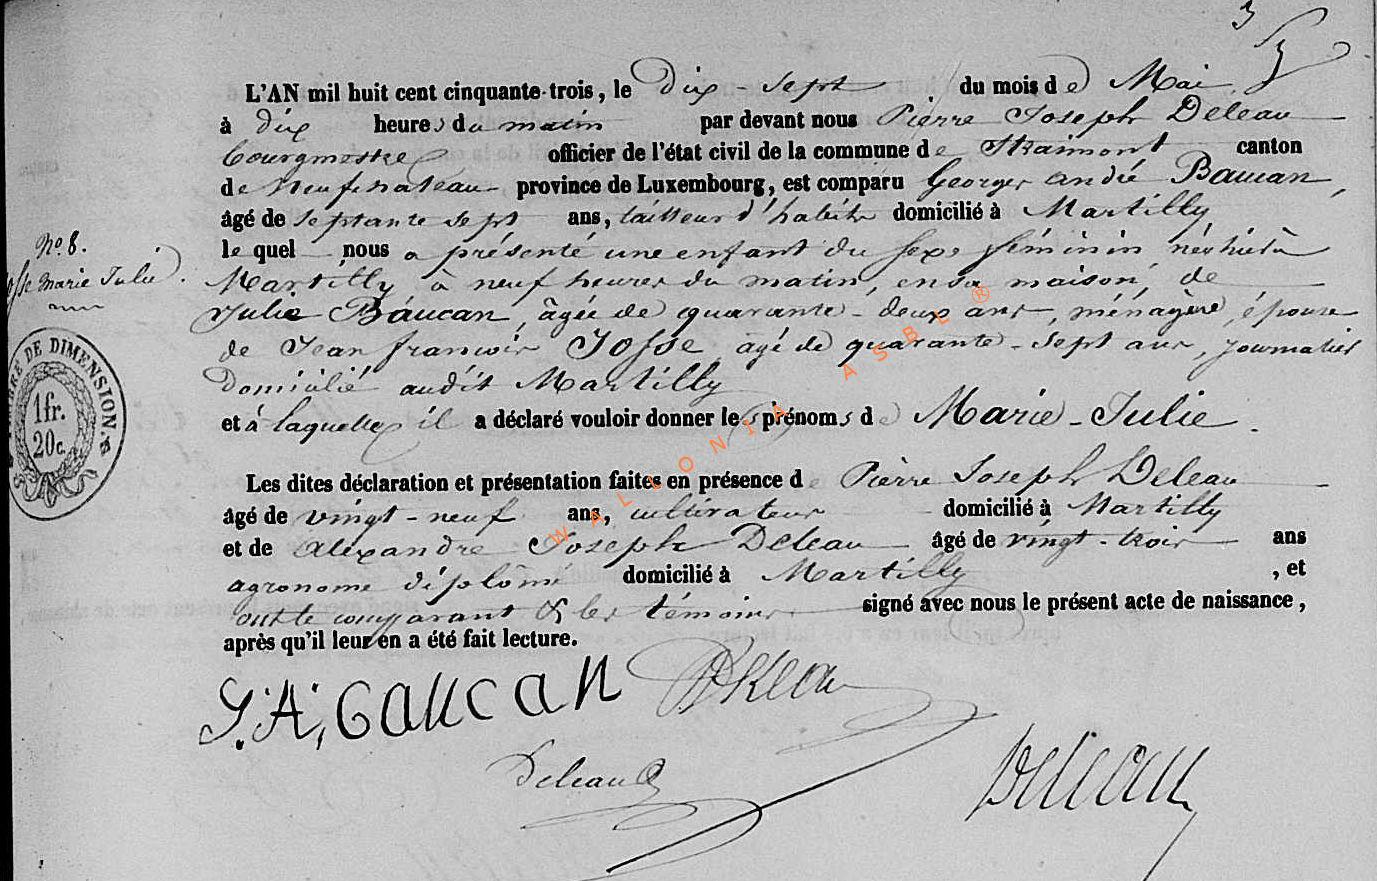 3
L'AN mil huit cent cinquante-trois, le dix-sept du mois de Mai
à dix heures du matin par devant nous Pierre Joseph Deleau
bourgmestre officier de l'état civil de la commune de Straimont canton
de Neufchateau province de Luxembourg, est comparu Georges André Baucan,
âgé de septante sept ans, tailleur d'habits domicilié à Martilly
le quel nous a présenté une enfant du sexe féminin, née hier à
N° 8.
Josse Marie Julie
Martilly à neuf heures du matin, en sa maison, de
Julie Baucan, âgée de quarante-deux ans, ménagère, épouse
de Jean françois Josse, âgé de quarante-sept ans, journalier
domicilié audit Martilly
et à laquelle il a déclaré vouloir donner les prénoms de Marie-Julie.
TIMBRE DE DIMENSION
1 fr.
20 c.
Les dites déclaration et présentation faites en présence de Pierre Joseph Deleau
âgé de vingt-neuf ans, cultivateur domicilié à Martilly
et de Alexandre Joseph Deleau âgé de vingt-trois ans
agronome diplômé domicilié à Martilly, et
ont le comparant & les témoins signé avec nous le présent acte de naissance,
après qu'il leur en a été fait lecture.
G. A, Gaucan Deleau
Deleau
Deleau
WALLONIA ASBL ®